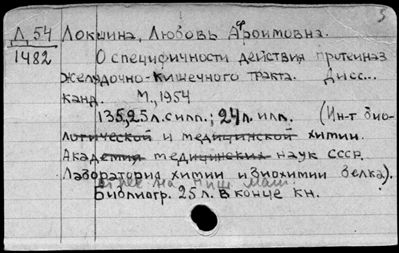 5
Л 54 Локшина, Любовь Ароимовна.
1482 О специфичности действия протеиназ
желудочно-кишечного тракта. Дисс...
канд. М., 1954
135,25л. с илл.; 24л. илл. (Ин-т био-
логической и медицинской химии.
Академия медицинских наук СССР.
Лаборатория химии и биохимии белка).
Библиогр. 25 л. в конце кн.